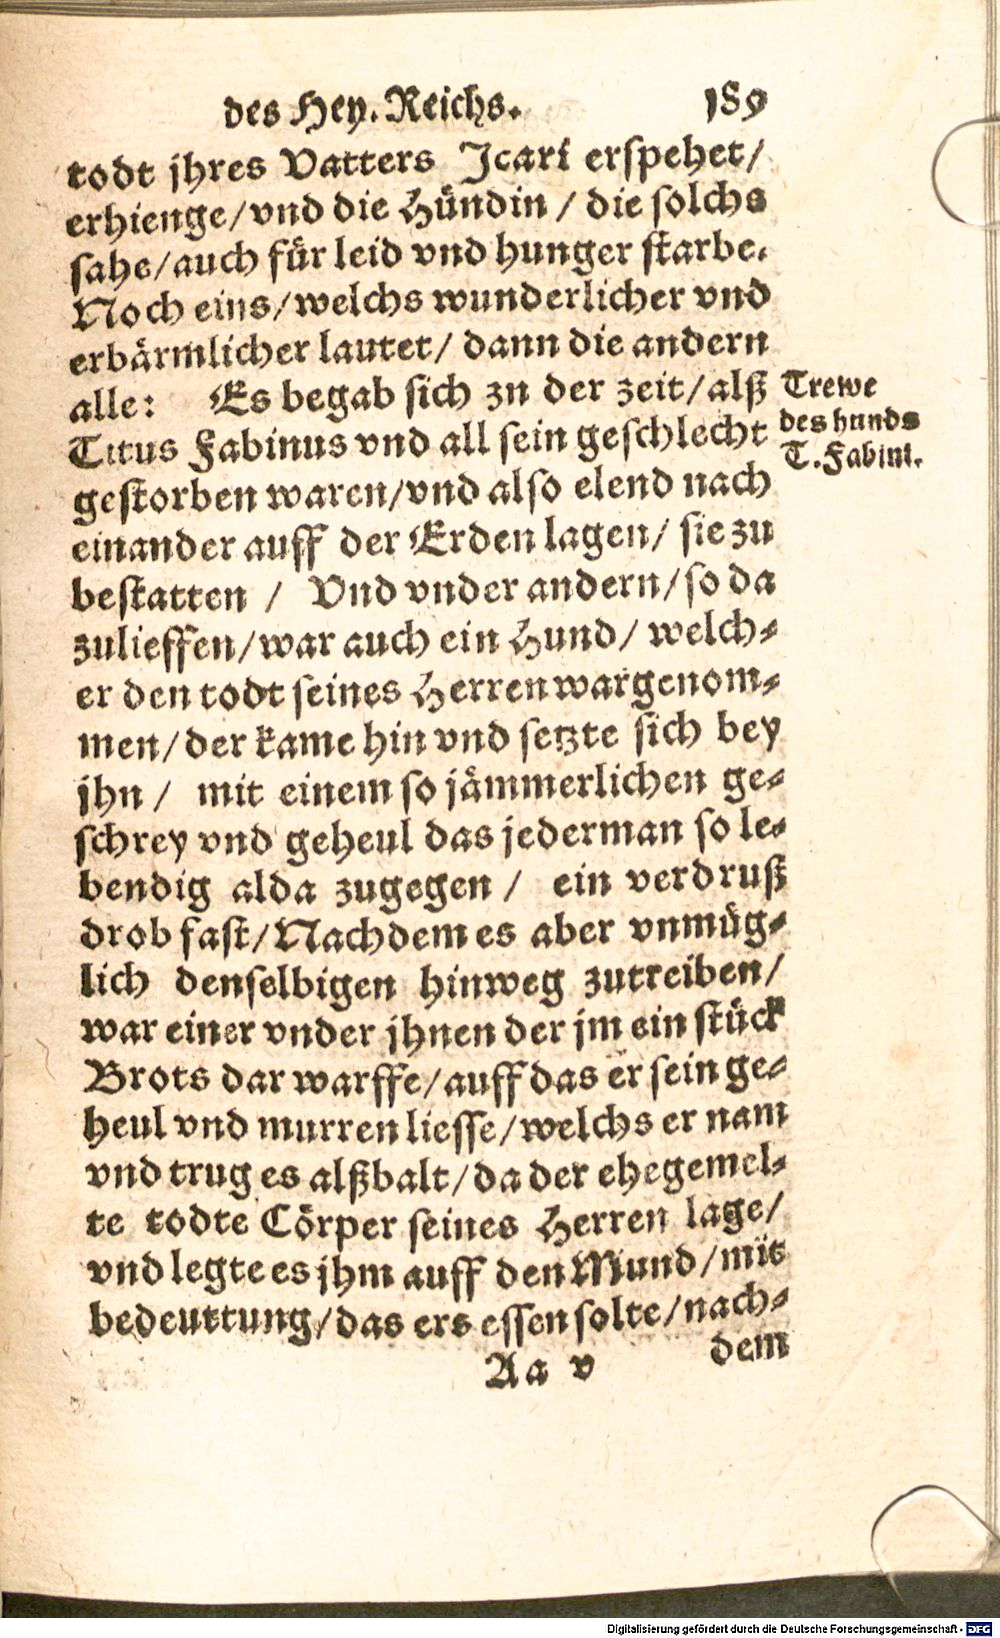 des Hey. Reichs. 189
todt jhres Vatters Jcari erspehet/
erhienge/vnd die Hündin / die solchs
sahe/auch für leid vnd hunger starbe.
Noch eins/welchs wunderlicher vnd
erbärmlicher lautet/ dann die andern
alle: Es begab sich zu der zeit/alß
Titus Fabinus vnd all sein geschlecht
gestorben waren/vnd also elend nach
einander auff der Erden lagen/ sie zu
bestatten / Vnd vnder andern/so da
zulieffen/war auch ein Hund/ welch-
er den todt seines Herren wargenom-
men/der kame hin vnd setzte sich bey
jhn / mit einem so jämmerlichen ge-
schrey vnd geheul das jederman so le-
bendig alda zugegen / ein verdruß
drob fast/Nachdem es aber vnmüg-
lich denselbigen hinweg zutreiben/
war einer vnder jhnen der jm ein stück
Brots dar warffe/auff das er sein ge-
heul vnd murren liesse/welchs er nam
vnd trug es alßbalt/da der ehegemel-
te todte Cörper seines Herren lage/
vnd legte es jhm auff den Mund/mit
bedeuttung/das ers essen solte/nach-
Aa v dem
Trewe
des hunds
T. Fabini.
Digitalisierung gefördert durch die Deutsche Forschungsgemeinschaft - DFG